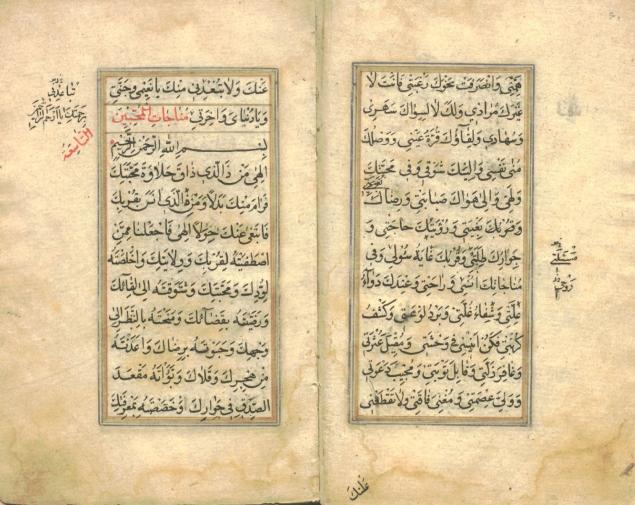 همتي وانصرفت نحوك رغبتي فانت لا
غيرك مرادي ولك لا لسواك سهري
وسهادي ولقاؤك قرة عيني ووصلك
منى نفسي واليك شوقي وفي محبتك
ولهي والى هواك صبابتي ورضاك
بغيتي ورؤيتك حاجتي و
جوارك طلبتي وقربك غاية سؤلي وفي
مناجاتك انسي وراحتي وعندك دواء
علتي وشفاء غلتي وبرد لوعتي وكشف
كربتي فكن انيسي في وحشتي ومقيل عثرتي
وغافر زلتي وقابل توبتي ومجيب دعوتي
وولي عصمتي ومغني فاقتي ولا تقطعني
عنك
عنك ولا تبعدني منك يا نعيمي وجنتي
ويا دنياي واخرتي مناجات المحبين
بسم الله الرحمن الرحيم
الهي من ذا الذي ذاق حلاوة محبتك
فرام منك بدلا ومن ذا الذي انس بقربك
فابتغى عنك حولا الهي فاجعلنا ممن
اصطفيته لقربك وولايتك واخلصته
لودك ومحبتك وشوقته الى لقائك
ورضيته بقضائك ومنحته بالنظر الى
وجهك وحبوته برضاك واعذته
من هجرك وقلاك وبوأته مقعد
الصدق في جوارك وخصصته بمعرفتك
التاسعة